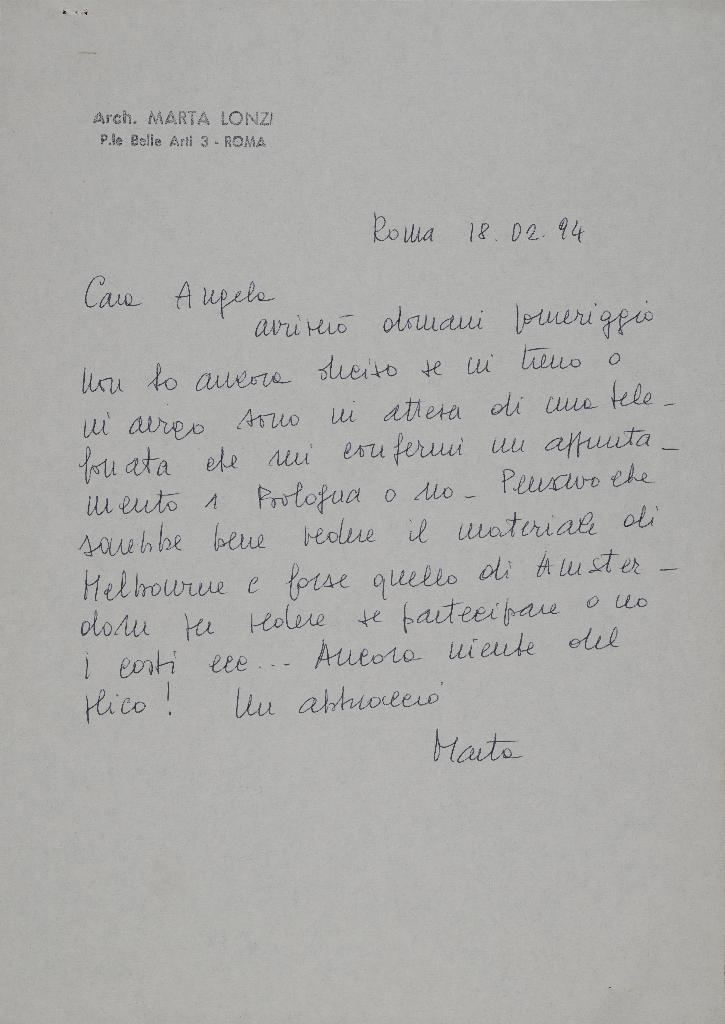 Arch. MARTA LONZI
P.le Belle Arti 3 - ROMA
Roma 18. 02. 94
Cara Angela
arriverò domani pomeriggio
non so ancora deciso se in treno o
in aereo sono in attesa di una tele-
fonata che mi confermi un appunta-
mento a Bologna o no - Pensavo che
sarebbe bene vedere il materiale di
Melbourne e forse quello di Amster-
dam per vedere se partecipare o no
i costi ecc... Ancora niente del
plico! Un abbraccio
Marta